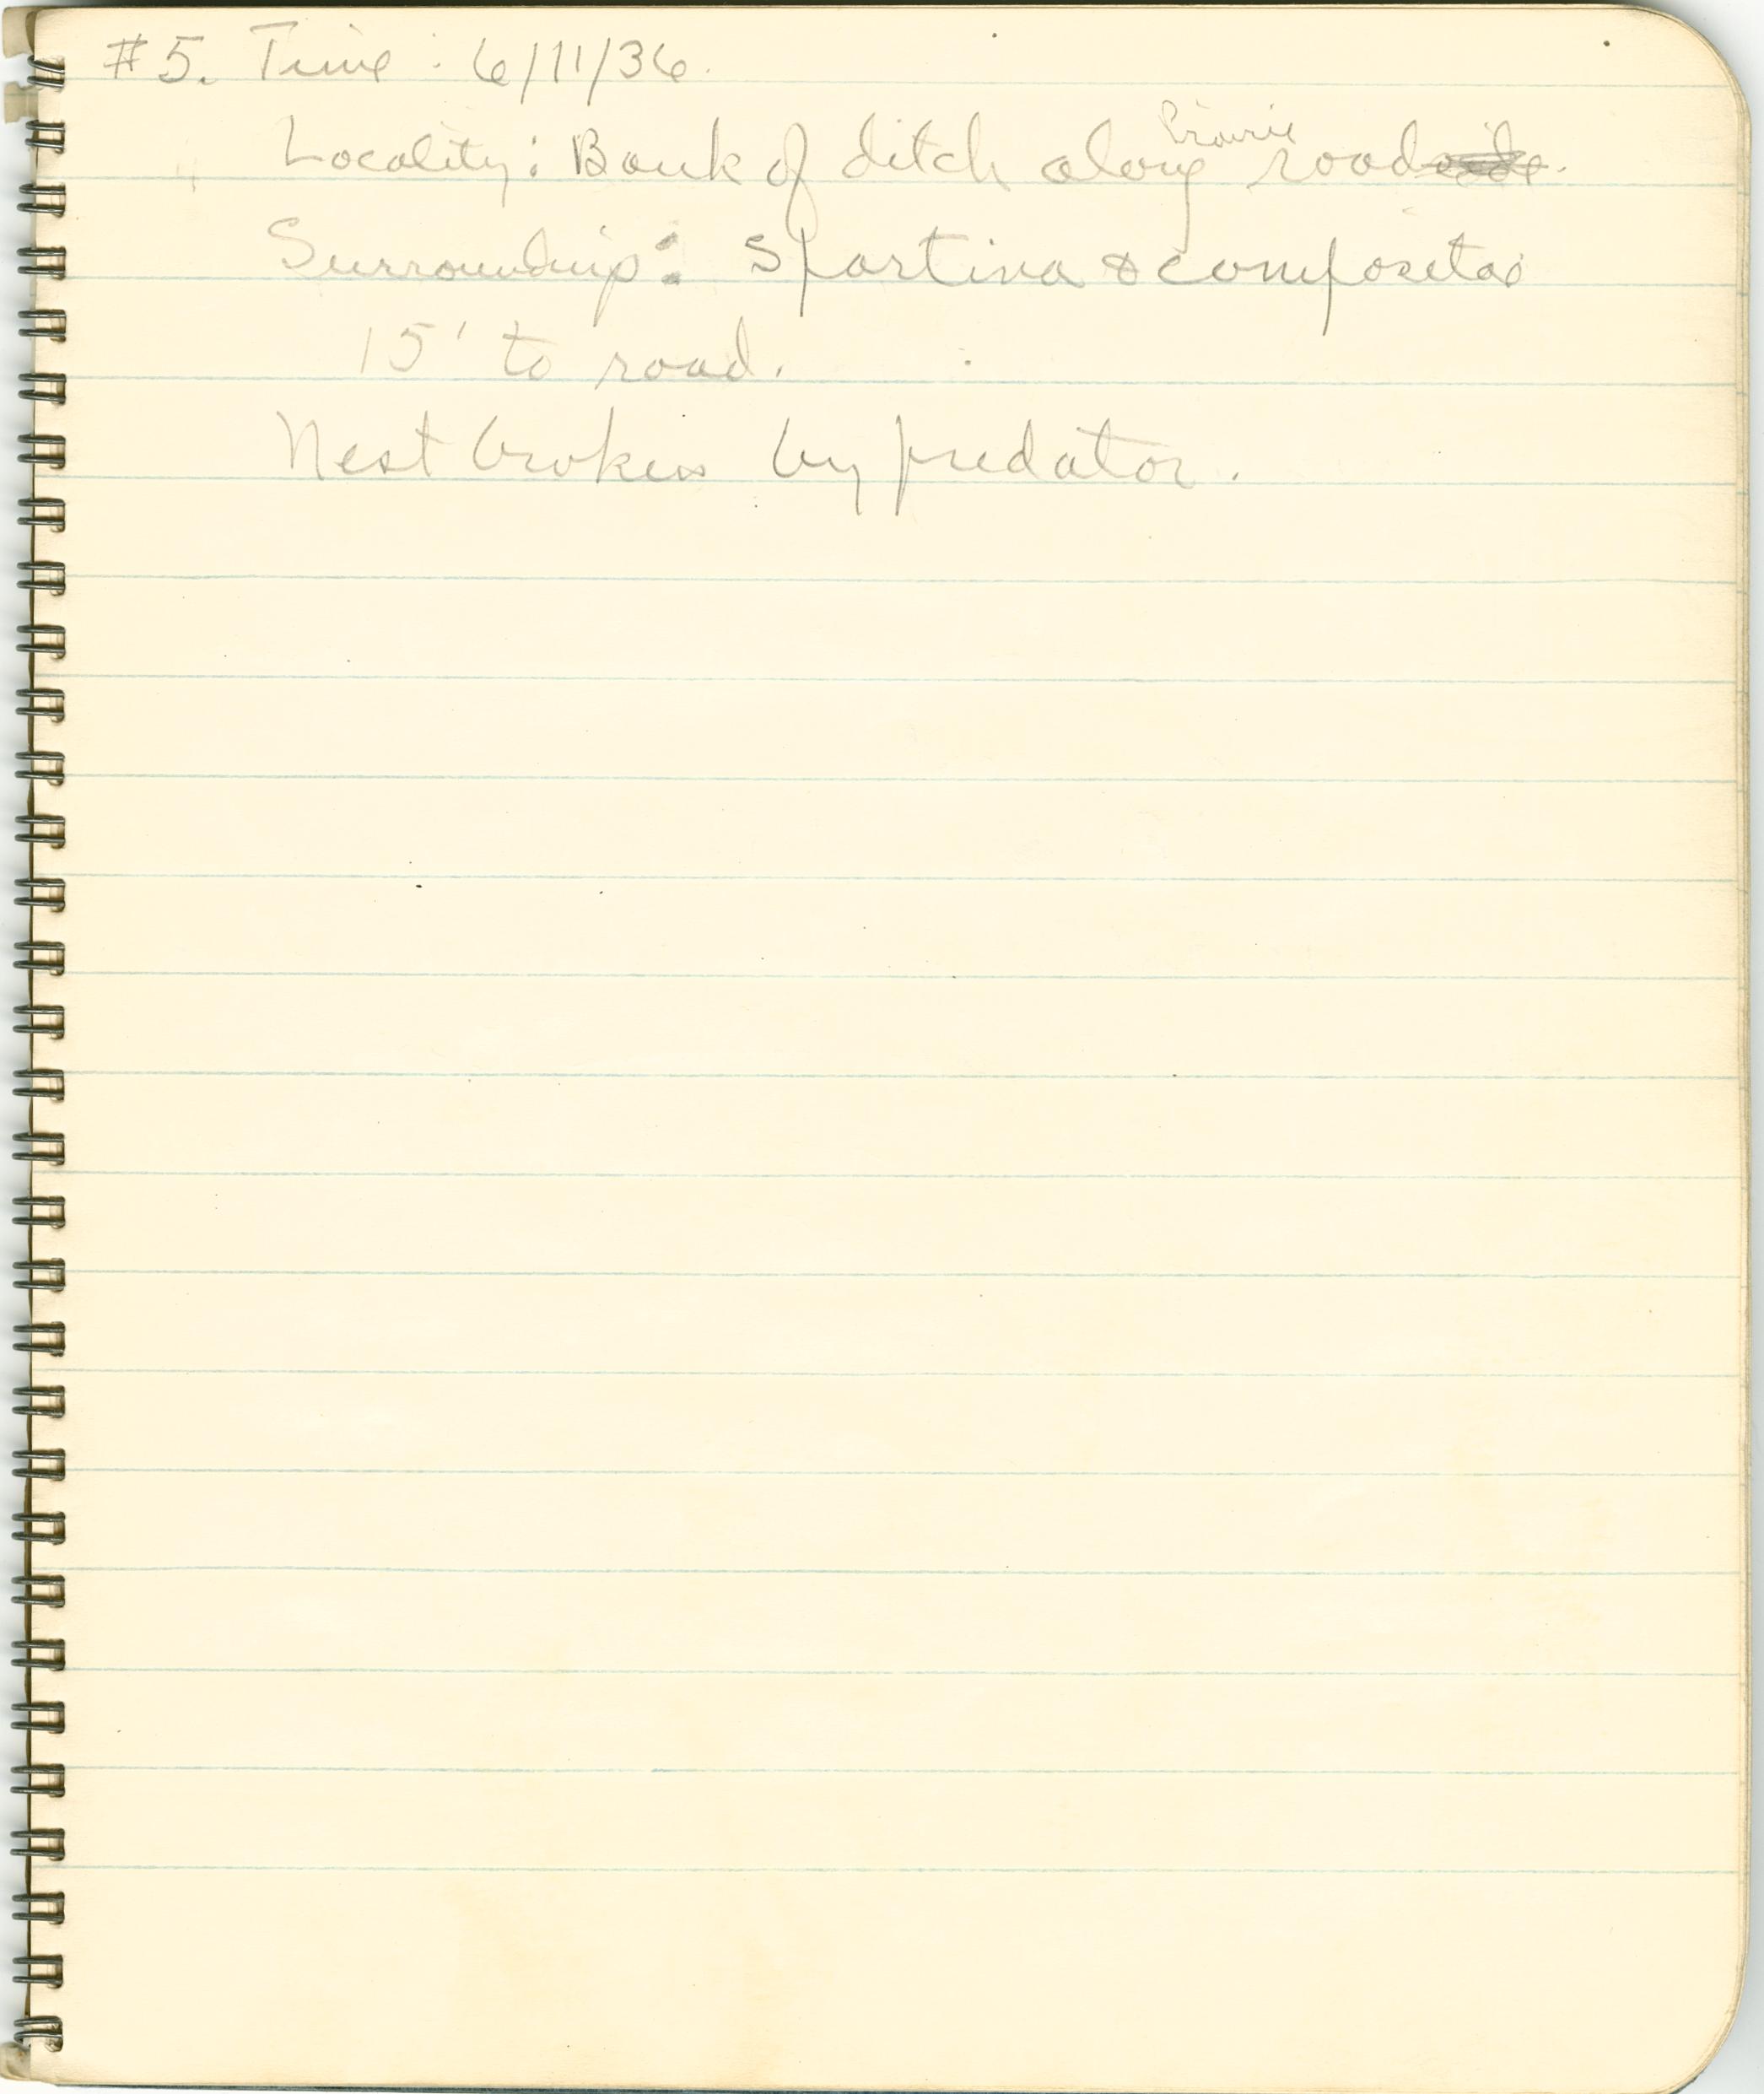 #5. Time : 6/11/36.
Locality: Bank of ditch along Prairie road
Surroundings: Spartina & compositae
15' to road.
Nest broken by predator.